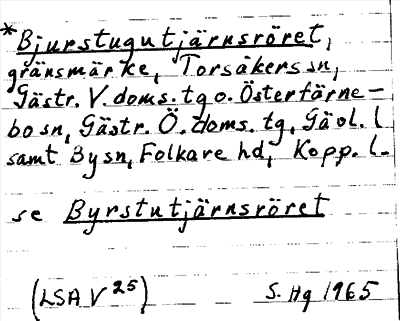 *Bjurstugutjärnsröret,
gränsmärke, Torsåkers sn,
Gästr. V. doms. tg o. Österfärne-
bo sn, Gästr. Ö. doms. tg, Gävl. l
samt By sn, Folkare hd, Kopp. l.
se Byrstutjärnsröret
(LSA V 25) S. Hg 1965